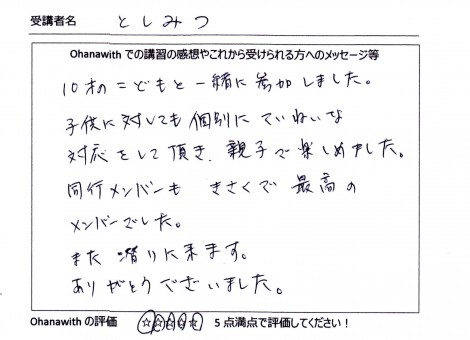 受講者名 としみつ
Ohanawith での講習の感想やこれから受けられる方へのメッセージ等
10才のこどもと一緒に参加しました。
子供に対しても個別にていねいな
対応をして頂き、親子で楽しめました。
同行メンバーも きさくで 最高の
メンバーでした。
また 潜りに来ます。
ありがとうございました。
Ohanawith の評価 ☆☆☆☆☆ 5 点満点で評価してください！